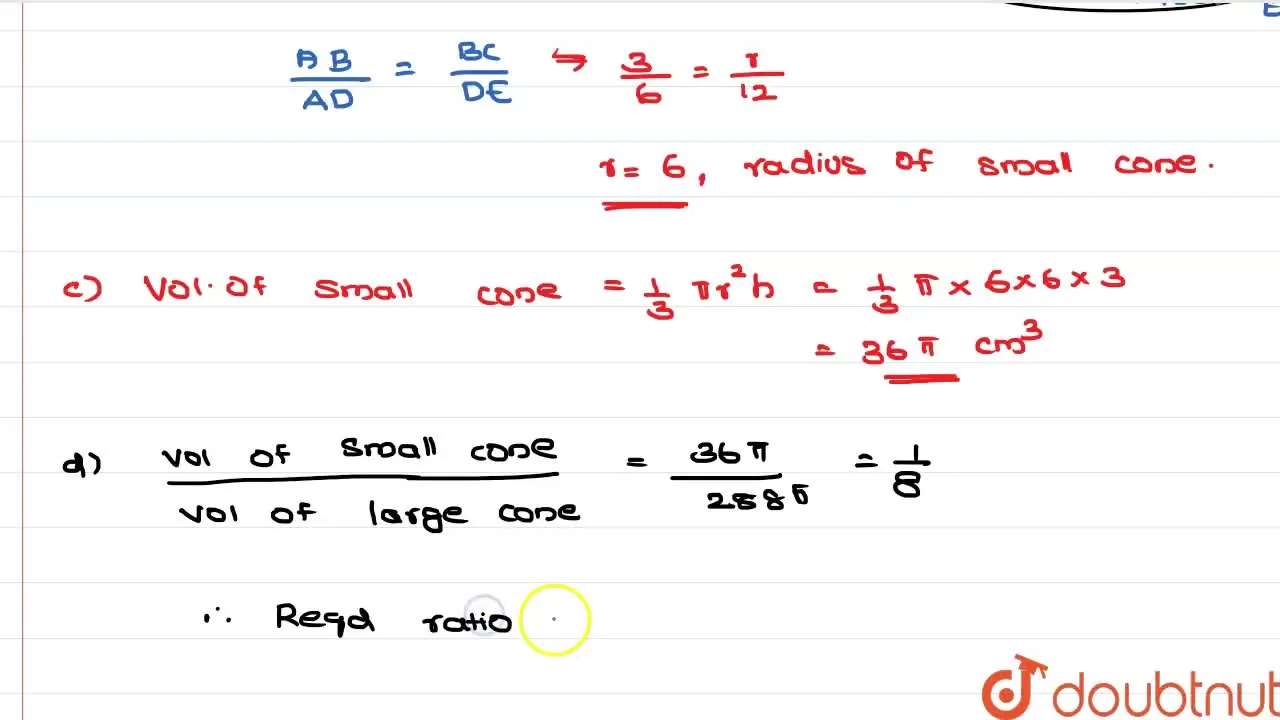 AB/AD = BC/DE ⇒ 3/6 = r/12
r = 6, radius of small cone.
c) Vol. Of small cone = 1/3 πr²h = 1/3 π × 6 × 6 × 3
= 36π cm³
d) Vol of small cone / Vol of large cone = 36π / 288π = 1/8
∴ Reqd ratio
doubtnut